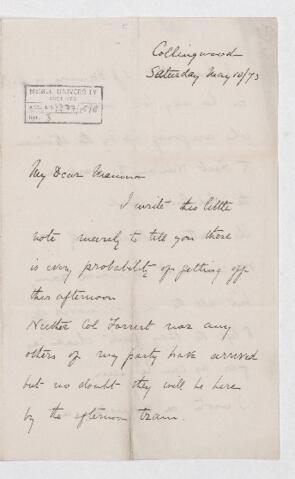 Collingwood
Saturday May 10/73
McGILL UNIVERSITY
ARCHIVES
ACC. NO.
REF. 3
My Dear Mamma
I write this little
note merely to tell you there
is every probability of getting off
this afternoon
Neither Col Forrest nor any
others of my party have arrived
but no doubt they will be here
by the afternoon train.